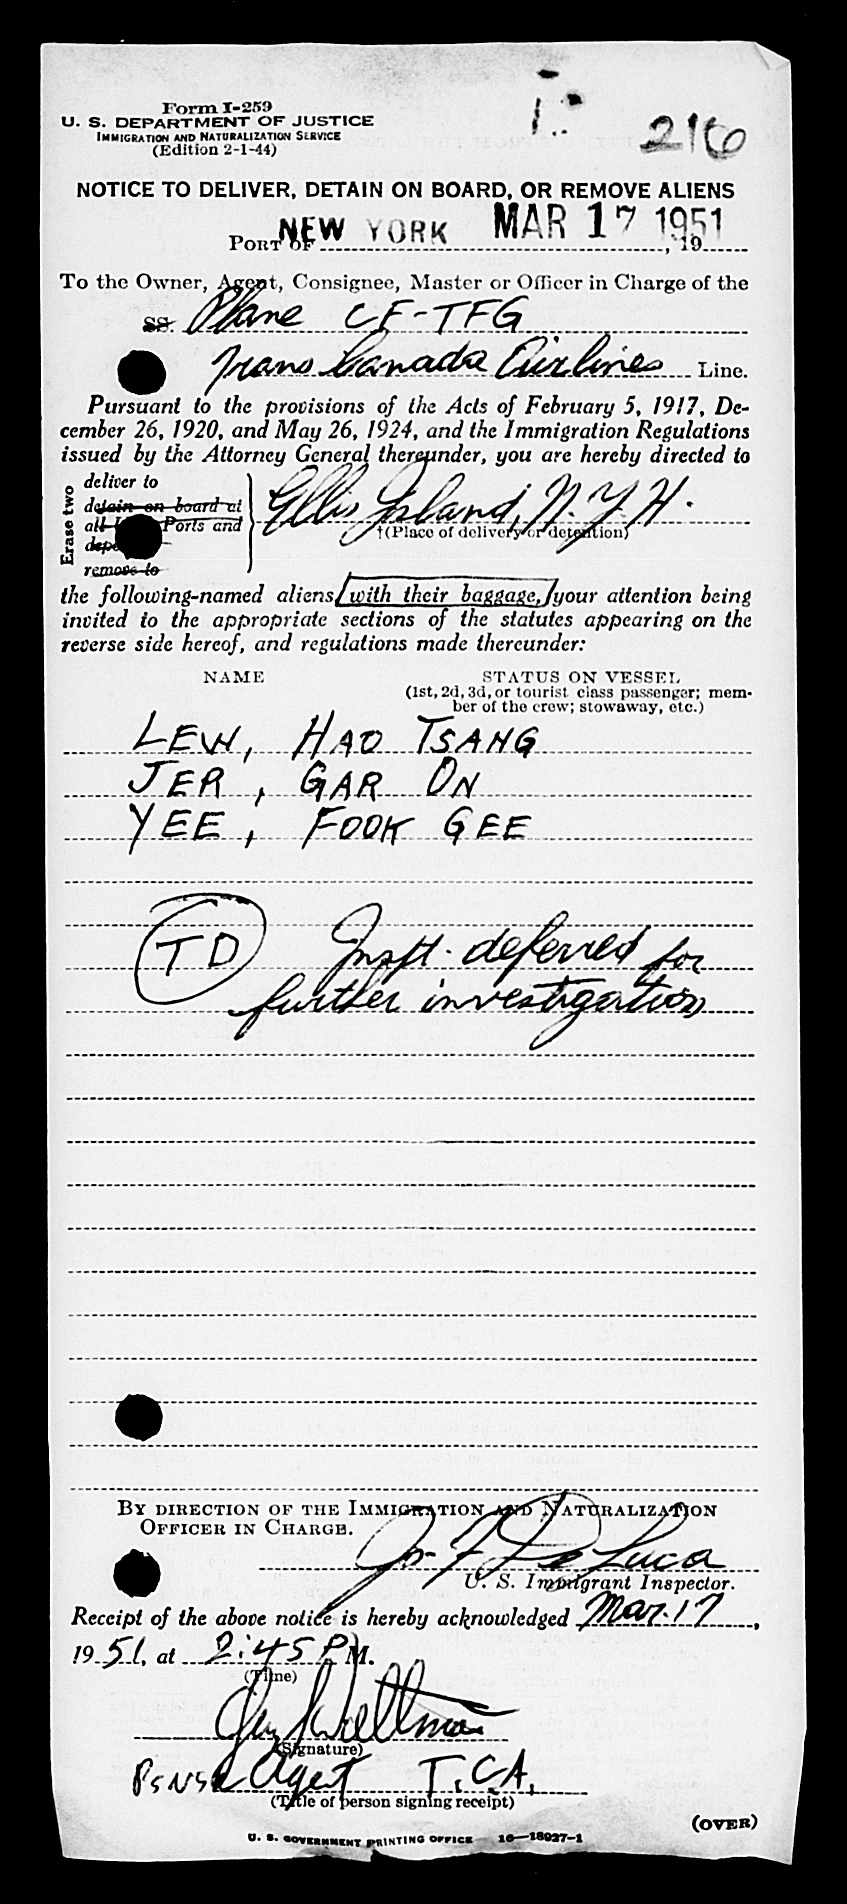 Form I-259
U. S. DEPARTMENT OF JUSTICE
IMMIGRATION AND NATURALIZATION SERVICE
(Edition 2-1-44)
216
NOTICE TO DELIVER, DETAIN ON BOARD, OR REMOVE ALIENS
PORT OF NEW YORK MAR 17 1951, 19
To the Owner, Agent, Consignee, Master or Officer in Charge of the
SS. Plane CF-TFG
Trans Canada Airlines Line.
Pursuant to the provisions of the Acts of February 5, 1917, De-
cember 26, 1920, and May 26, 1924, and the Immigration Regulations
issued by the Attorney General thereunder, you are hereby directed to
Erase two
deliver to
detain on board at
all Ports and
remove to
Ellis Island, N.Y.H.
†(Place of delivery or detention)
the following-named aliens, with their baggage, your attention being
invited to the appropriate sections of the statutes appearing on the
reverse side hereof, and regulations made thereunder:
NAME STATUS ON VESSEL
(1st, 2d, 3d, or tourist class passenger; mem-
ber of the crew; stowaway, etc.)
LEW, HAO TSANG
JER, GAR ON
YEE, FOOK GEE
TD Inspt. deferred for
further investigation
BY DIRECTION OF THE IMMIGRATION AND NATURALIZATION
OFFICER IN CHARGE.
De Luca
U. S. Immigrant Inspector.
Receipt of the above notice is hereby acknowledged Mar. 17,
1951, at 2:45 P M.
(Time)
(Signature)
Agent T.C.A.
(Title of person signing receipt)
(OVER)
U. S. GOVERNMENT PRINTING OFFICE 16—18027-1